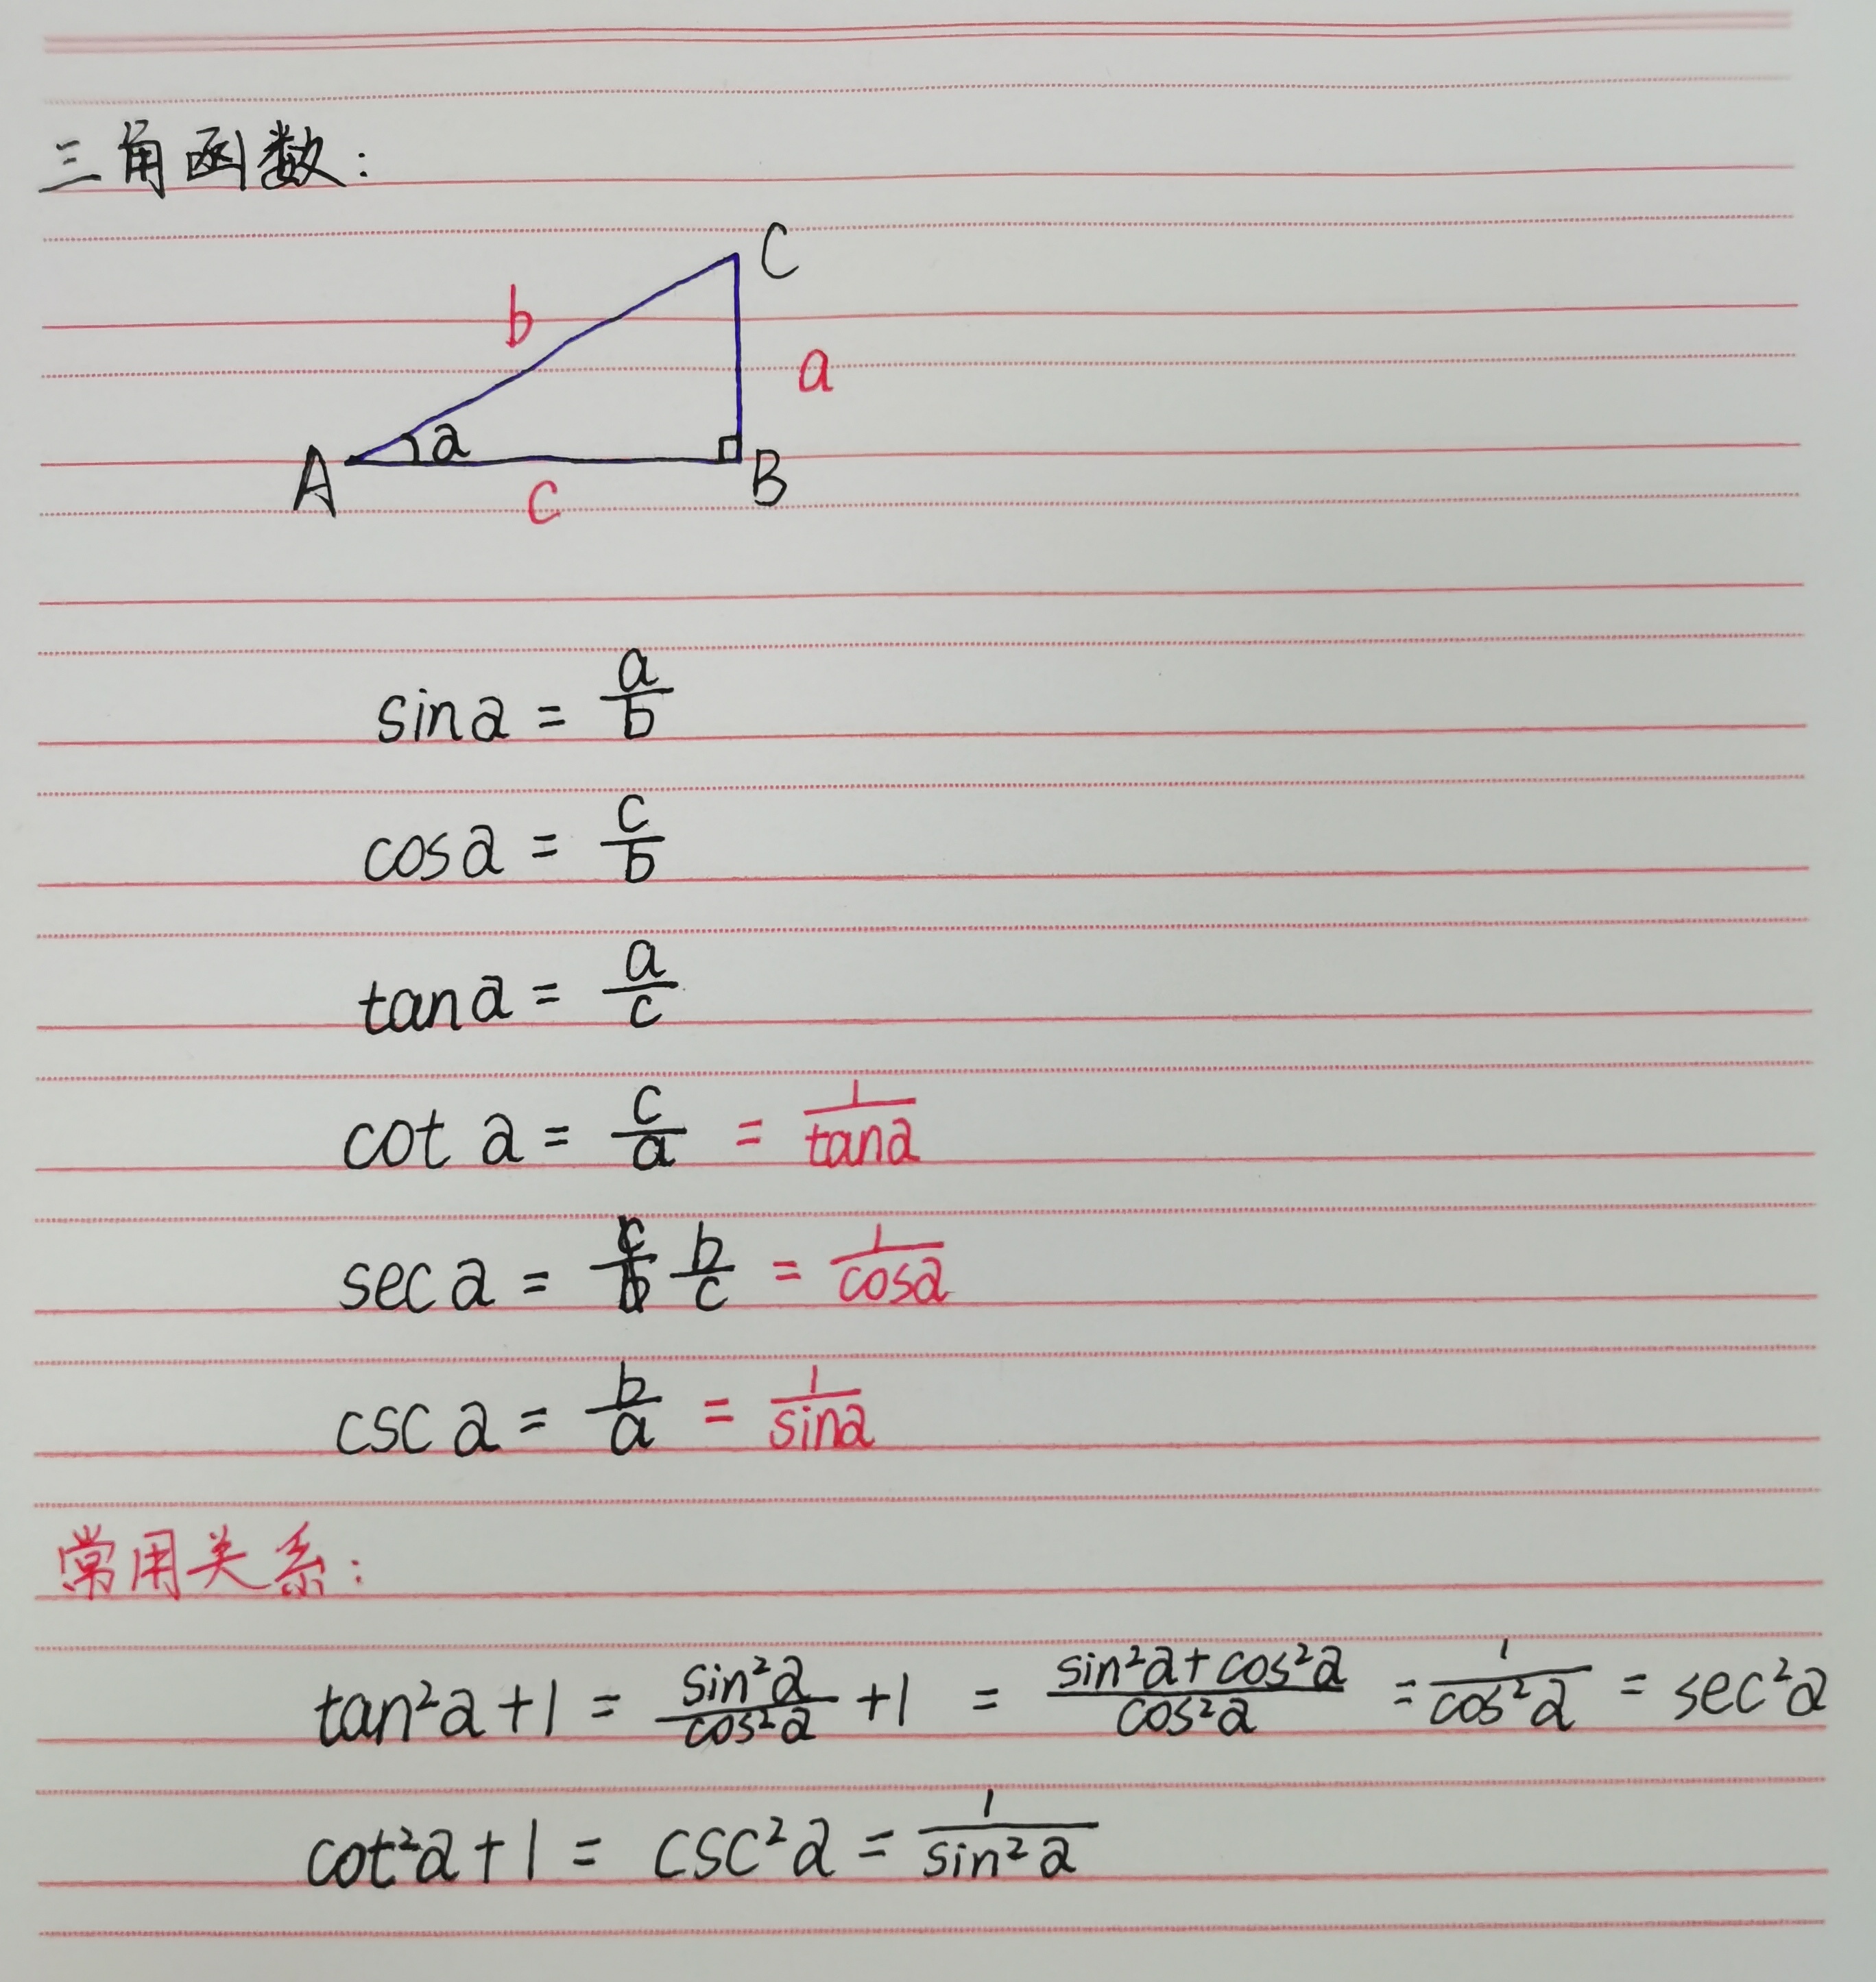 三角函数:
C
b
a
a
A
B
c
sin a = a/b
cos a = c/b
tan a = a/c
cot a = c/a = 1/tan a
sec a = b/c = 1/cos a
csc a = b/a = 1/sin a
常用关系:
tan²a + 1 = sin²a/cos²a + 1 = (sin²a + cos²a)/cos²a = 1/cos²a = sec²a
cot²a + 1 = csc²a = 1/sin²a